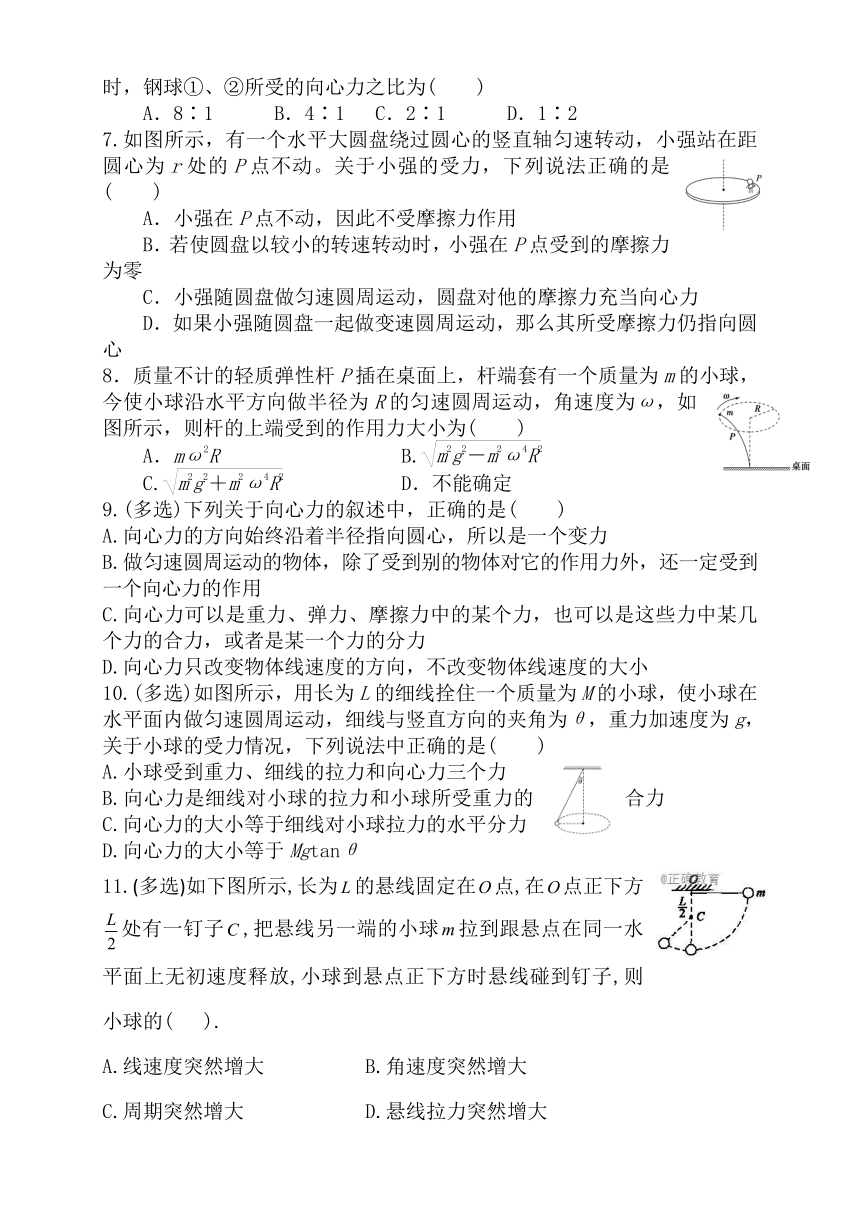 时，钢球①、②所受的向心力之比为(　　)
A．8∶1　　B．4∶1　C．2∶1　　D．1∶2
7.如图所示，有一个水平大圆盘绕过圆心的竖直轴匀速转动，小强站在距
圆心为 r 处的 P 点不动。关于小强的受力，下列说法正确的是
(　　)
P
A．小强在 P 点不动，因此不受摩擦力作用
B．若使圆盘以较小的转速转动时，小强在 P 点受到的摩擦力
为零
C．小强随圆盘做匀速圆周运动，圆盘对他的摩擦力充当向心力
D．如果小强随圆盘一起做变速圆周运动，那么其所受摩擦力仍指向圆
心
8．质量不计的轻质弹性杆 P 插在桌面上，杆端套有一个质量为 m 的小球，
今使小球沿水平方向做半径为 R 的匀速圆周运动，角速度为 ω，如
图所示，则杆的上端受到的作用力大小为(　　)
ω
m
R
P
桌面
A．mω²R　　B.√(m²g²－m²ω⁴R²)
C.√(m²g²＋m²ω⁴R²)　　D．不能确定
9.(多选)下列关于向心力的叙述中，正确的是(　　)
A.向心力的方向始终沿着半径指向圆心，所以是一个变力
B.做匀速圆周运动的物体，除了受到别的物体对它的作用力外，还一定受到
一个向心力的作用
C.向心力可以是重力、弹力、摩擦力中的某个力，也可以是这些力中某几
个力的合力，或者是某一个力的分力
D.向心力只改变物体线速度的方向，不改变物体线速度的大小
10.(多选)如图所示，用长为 L 的细线拴住一个质量为 M 的小球，使小球在
水平面内做匀速圆周运动，细线与竖直方向的夹角为 θ，重力加速度为 g，
关于小球的受力情况，下列说法中正确的是(　　)
A.小球受到重力、细线的拉力和向心力三个力
B.向心力是细线对小球的拉力和小球所受重力的　　合力
C.向心力的大小等于细线对小球拉力的水平分力
D.向心力的大小等于 Mgtan θ
θ
11.(多选)如下图所示,长为 L 的悬线固定在 O 点,在 O 点正下方
L/2 处有一钉子 C ,把悬线另一端的小球 m 拉到跟悬点在同一水
平面上无初速度释放,小球到悬点正下方时悬线碰到钉子,则
小球的(　　).
@正确教育
O
m
L/2
C
A.线速度突然增大　　B.角速度突然增大
C.周期突然增大　　D.悬线拉力突然增大